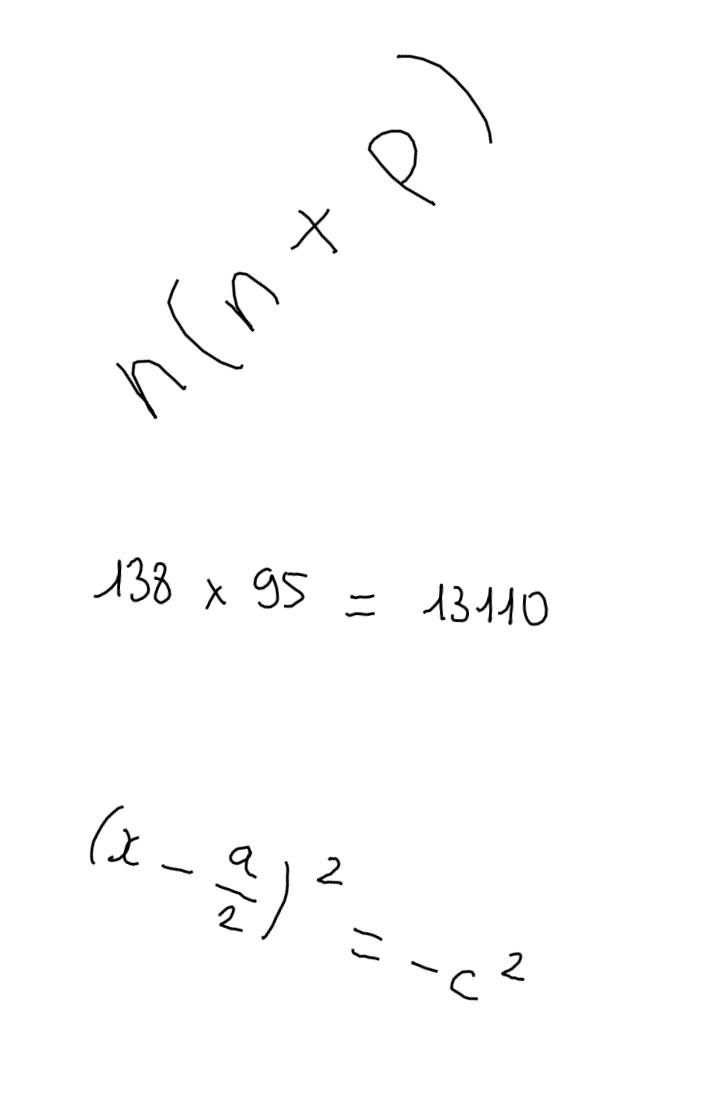 n(n + p)
138 × 95 = 13110
(x - a/2)² = -c²